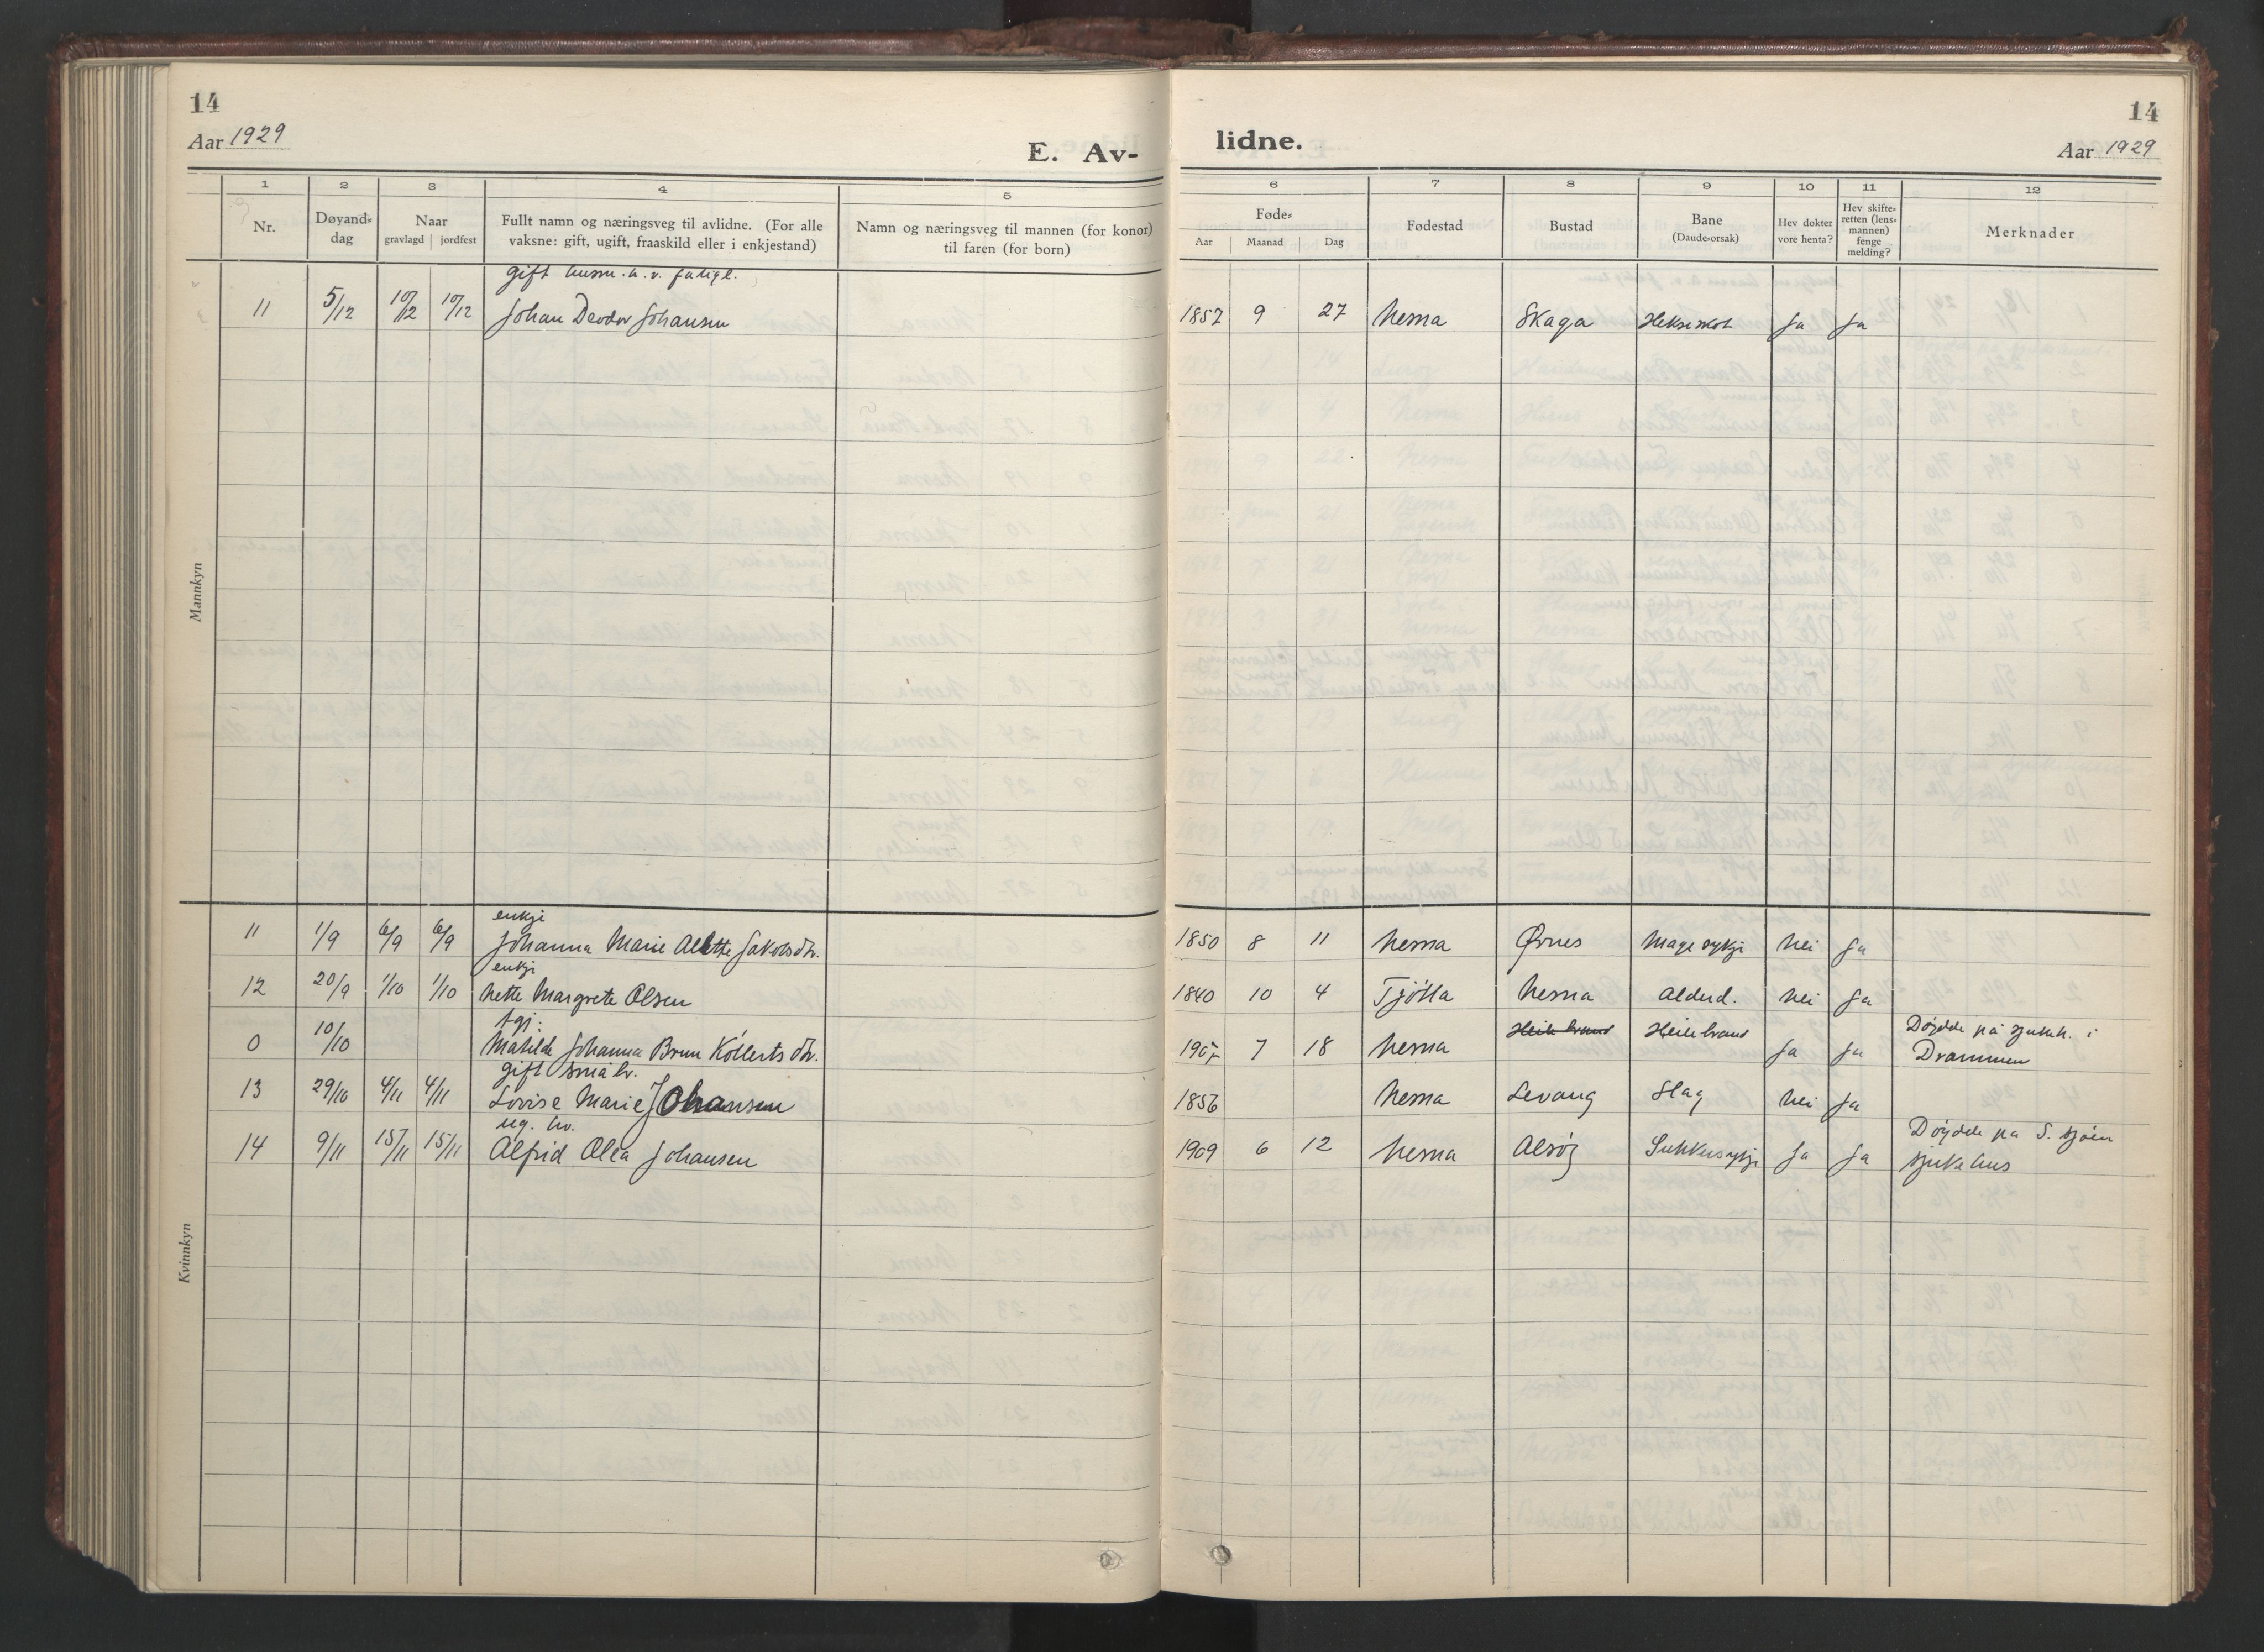 14
Aar 1929
E. Av-
lidne.
14
Aar 1929
1 2 3 4 5 6 7 8 9 10 11 12
Nr.
Døyand-
dag
Naar
gravlagd | jordfest
Fullt namn og næringsveg til avlidne. (For alle
vaksne: gift, ugift, fraaskild eller i enkjestand)
Namn og næringsveg til mannen (for konor)
til faren (for born)
Føde-
Aar Maanad Dag
Fødestad
Bustad
Bane
(Daudeorsak)
Hev dokter
vore henta?
Hev skifte-
retten (lens-
mannen)
fenge
melding?
Merknader
Mannkyn
gift husm.
11 5/12 10/12 10/12 Johan Deodor Johansen 1857 9 27 Nesna Skaga Hekseskot Ja Ja
Kvinnkyn
enkje
11 1/9 6/9 6/9 Johanna Marie Alette Jakobsdtr. 1850 8 11 Nesna Ørnes Mage sykje Nei Ja
enkje
12 20/9 1/10 1/10 Nette Margrete Olsen 1840 10 4 Tjötta Nesna Alderd. Nei Ja
tgj:
0 10/10 Matilde Johanna Brun Köllertsdtr. 7 18 Nesna Heilebrand Ja Ja Döydde på sjukeh. i
Drammen
gift småbr.
13 29/10 4/11 4/11 Lovise Marie Johansen 1856 Nesna Levang Slag Nei Ja
ug. hv.
14 9/11 15/11 15/11 Alfrid Olea Johansen 1909 6 12 Nesna Alsöy Sukkersykje Ja Ja Döydde på S. sjöen
sjukehus